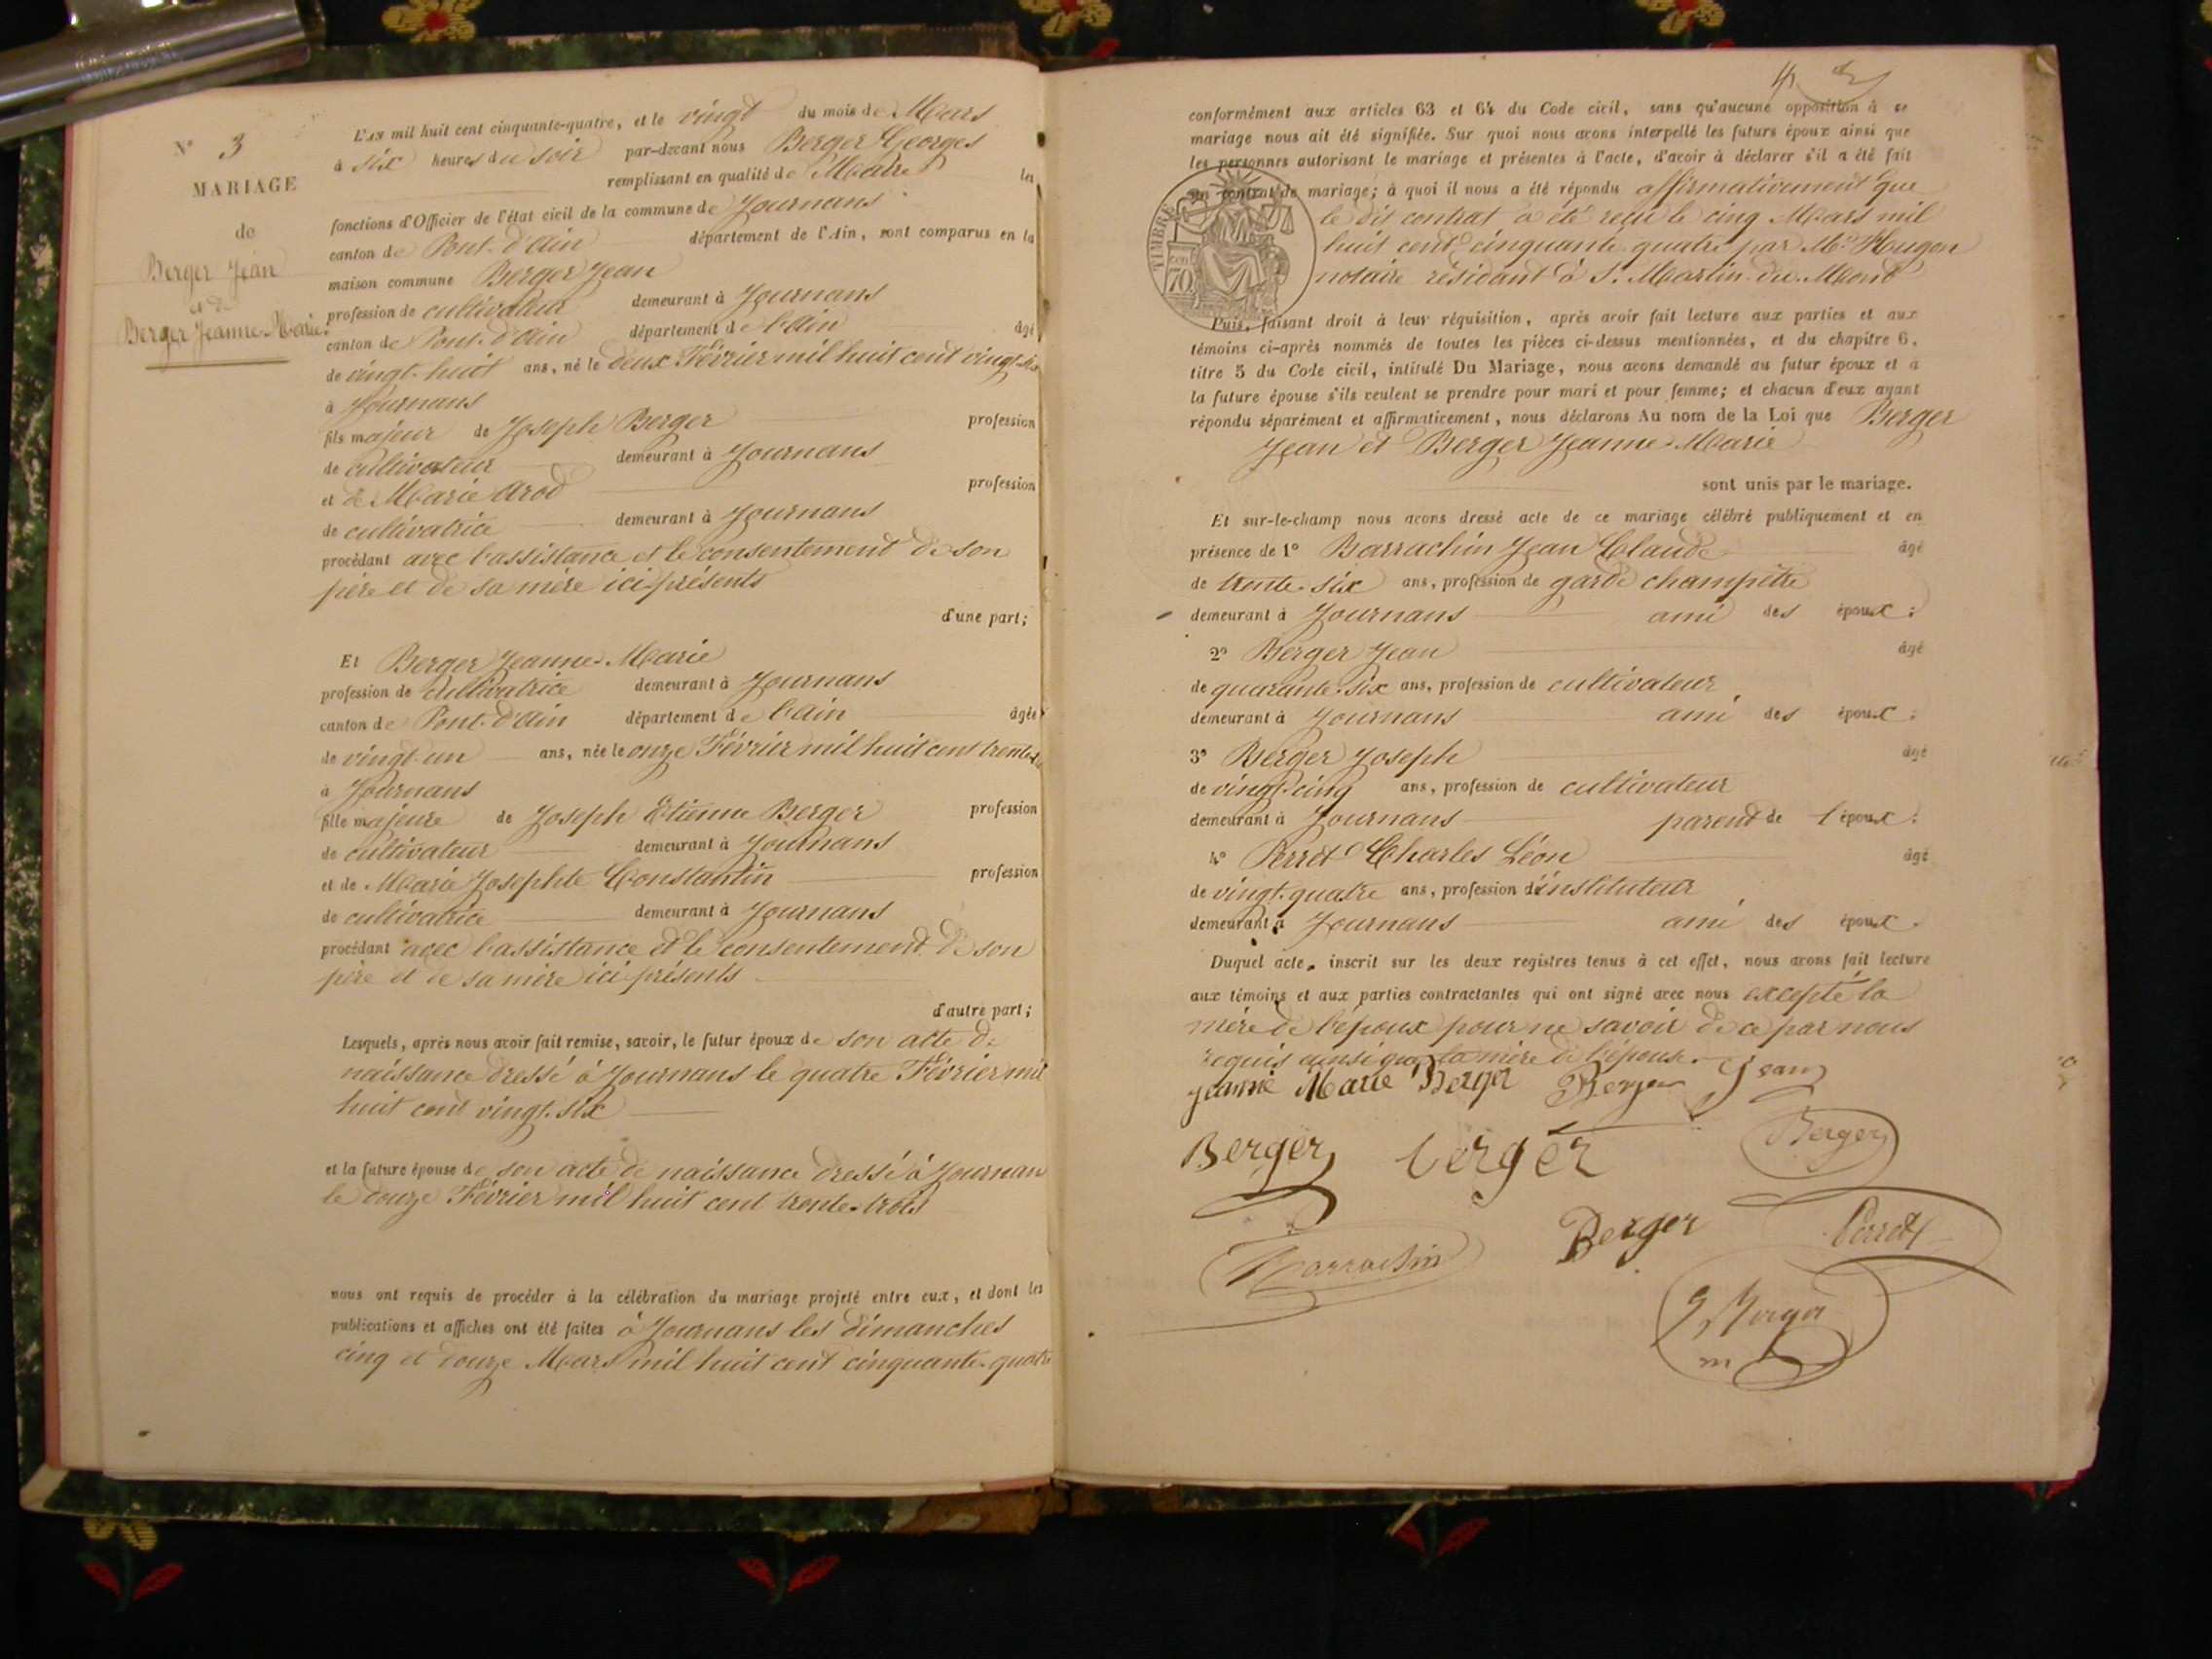 N° 3
MARIAGE
de
Berger Jean
et de
Berger Jeanne-Marie
L'AN mil huit cent cinquante-quatre, et le vingt du mois de Mars
à six heures du soir par-devant nous Berger Georges
remplissant en qualité de Maire les
fonctions d'Officier de l'état civil de la commune de Journans
canton de Pont-d'Ain département de l'Ain, sont comparus en la
maison commune Berger Jean
profession de cultivateur demeurant à Journans
canton de Pont-d'Ain département de l'Ain âgé
de vingt-huit ans, né le deux Février mil huit cent vingt-six
à Journans
fils majeur de Joseph Berger profession
de cultivateur demeurant à Journans
et de Marie Arod profession
de cultivatrice demeurant à Journans
procédant avec l'assistance et le consentement de son
père et de sa mère ici présents
d'une part;
Et Berger Jeanne-Marie
profession de cultivatrice demeurant à Journans
canton de Pont-d'Ain département de l'Ain âgée
de vingt-un ans, née le onze Février mil huit cent trente
à Journans
fille majeure de Joseph Etienne Berger profession
de cultivateur demeurant à Journans
et de Marie Josephte Constantin profession
de cultivatrice demeurant à Journans
procédant avec l'assistance et le consentement de son
père et de sa mère ici présents
d'autre part;
Lesquels, après nous avoir fait remise, savoir, le futur époux de son acte de
naissance dressé à Journans le quatre Février mil
huit cent vingt-six
et la future épouse de son acte de naissance dressé à Journans
le douze Février mil huit cent trente-trois
nous ont requis de procéder à la célébration du mariage projeté entre eux, et dont les
publications et affiches ont été faites à Journans les dimanches
cinq et douze Mars mil huit cent cinquante-quatre
conformément aux articles 63 et 64 du Code civil, sans qu'aucune opposition à ce
mariage nous ait été signifiée. Sur quoi nous avons interpellé les futurs époux ainsi que
les personnes autorisant le mariage et présentes à l'acte, d'avoir à déclarer s'il a été fait
un contrat de mariage; à quoi il nous a été répondu affirmativement que
le dit contrat a été reçu le cinq Mars mil
huit cent cinquante quatre par Me Hugon
notaire résidant à St Martin-du-Mont
TIMBRE
70
Puis, faisant droit à leur réquisition, après avoir fait lecture aux parties et aux
témoins ci-après nommés de toutes les pièces ci-dessus mentionnées, et du chapitre 6,
titre 5 du Code civil, intitulé Du Mariage, nous avons demandé au futur époux et à
la future épouse s'ils veulent se prendre pour mari et pour femme; et chacun d'eux ayant
répondu séparément et affirmativement, nous déclarons Au nom de la Loi que Berger
Jean et Berger Jeanne-Marie
sont unis par le mariage.
Et sur-le-champ nous avons dressé acte de ce mariage célébré publiquement et en
présence de 1° Barrachin Jean Claude âgé
de trente-six ans, profession de garde champêtre
demeurant à Journans ami des époux;
2° Berger Jean âgé
de quarante-six ans, profession de cultivateur
demeurant à Journans ami des époux;
3° Berger Joseph âgé
de vingt-cinq ans, profession de cultivateur
demeurant à Journans parent de l'époux;
4° Perret Charles Léon âgé
de vingt-quatre ans, profession d'instituteur
demeurant à Journans ami des époux.
Duquel acte, inscrit sur les deux registres tenus à cet effet, nous avons fait lecture
aux témoins et aux parties contractantes qui ont signé avec nous excepté la
mère de l'époux pour ne savoir de ce par nous
requis ainsi que la mère de l'épouse.
Jeanne Marie Berger Berger Jean
Berger berger Berger
Barrachin Berger Perret
G Berger
m